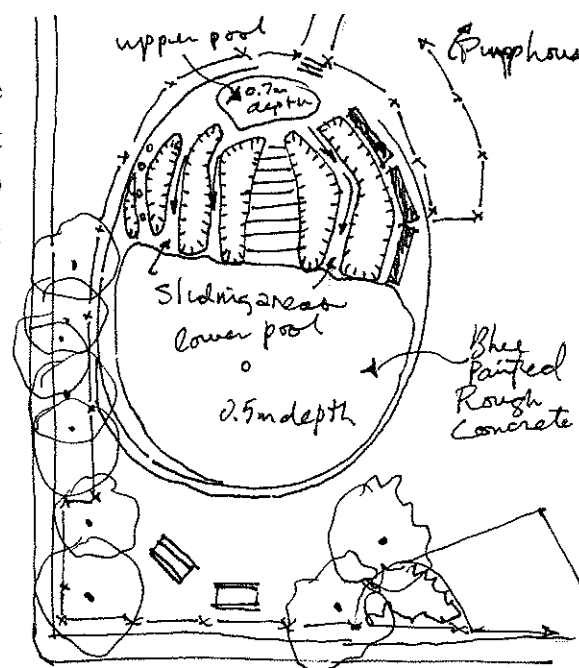 upper pool
(Pumphous
0.7m
depth
Sliding areas
lower pool
0.5m depth
Blue
Painted
Rough
Concrete